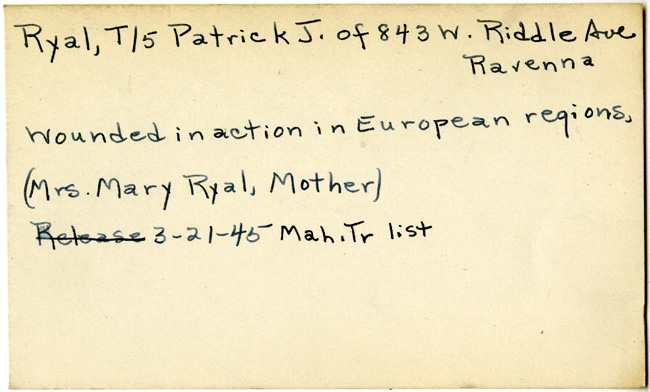 Ryal, T/5 Patrick J. of 843 W. Riddle Ave
Ravenna
Wounded in action in European regions,
(Mrs. Mary Ryal, Mother)
Release 3-21-45 Mah. Tr list